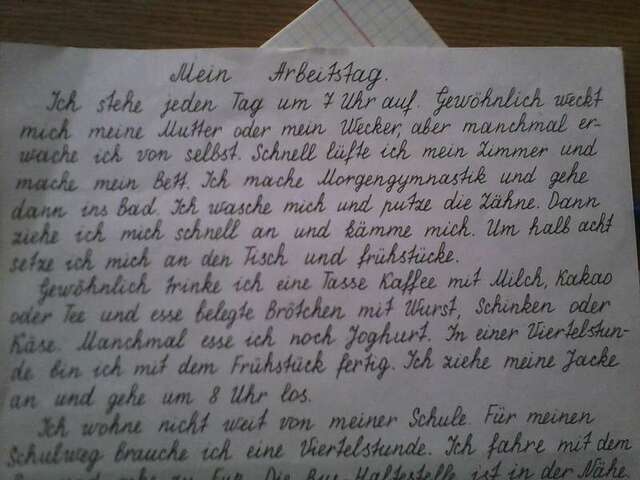 Mein Arbeitstag.
Ich stehe jeden Tag um 7 Uhr auf. Gewöhnlich weckt
mich meine Mutter oder mein Wecker, aber manchmal er-
wache ich von selbst. Schnell lüfte ich mein Zimmer und
mache mein Bett. Ich mache Morgengymnastik und gehe
dann ins Bad. Ich wasche mich und putze die Zähne. Dann
ziehe ich mich schnell an und kämme mich. Um halb acht
setze ich mich an den Tisch und frühstücke.
Gewöhnlich trinke ich eine Tasse Kaffee mit Milch, Kakao
oder Tee und esse belegte Brötchen mit Wurst, Schinken oder
Käse. Manchmal esse ich noch Joghurt. In einer Viertelstun-
de bin ich mit dem Frühstück fertig. Ich ziehe meine Jacke
an und gehe um 8 Uhr los.
Ich wohne nicht weit von meiner Schule. Für meinen
Schulweg brauche ich eine Viertelstunde. Ich fahre mit dem
zu Fuß. Die Bus-Haltestelle ist in der Nähe.